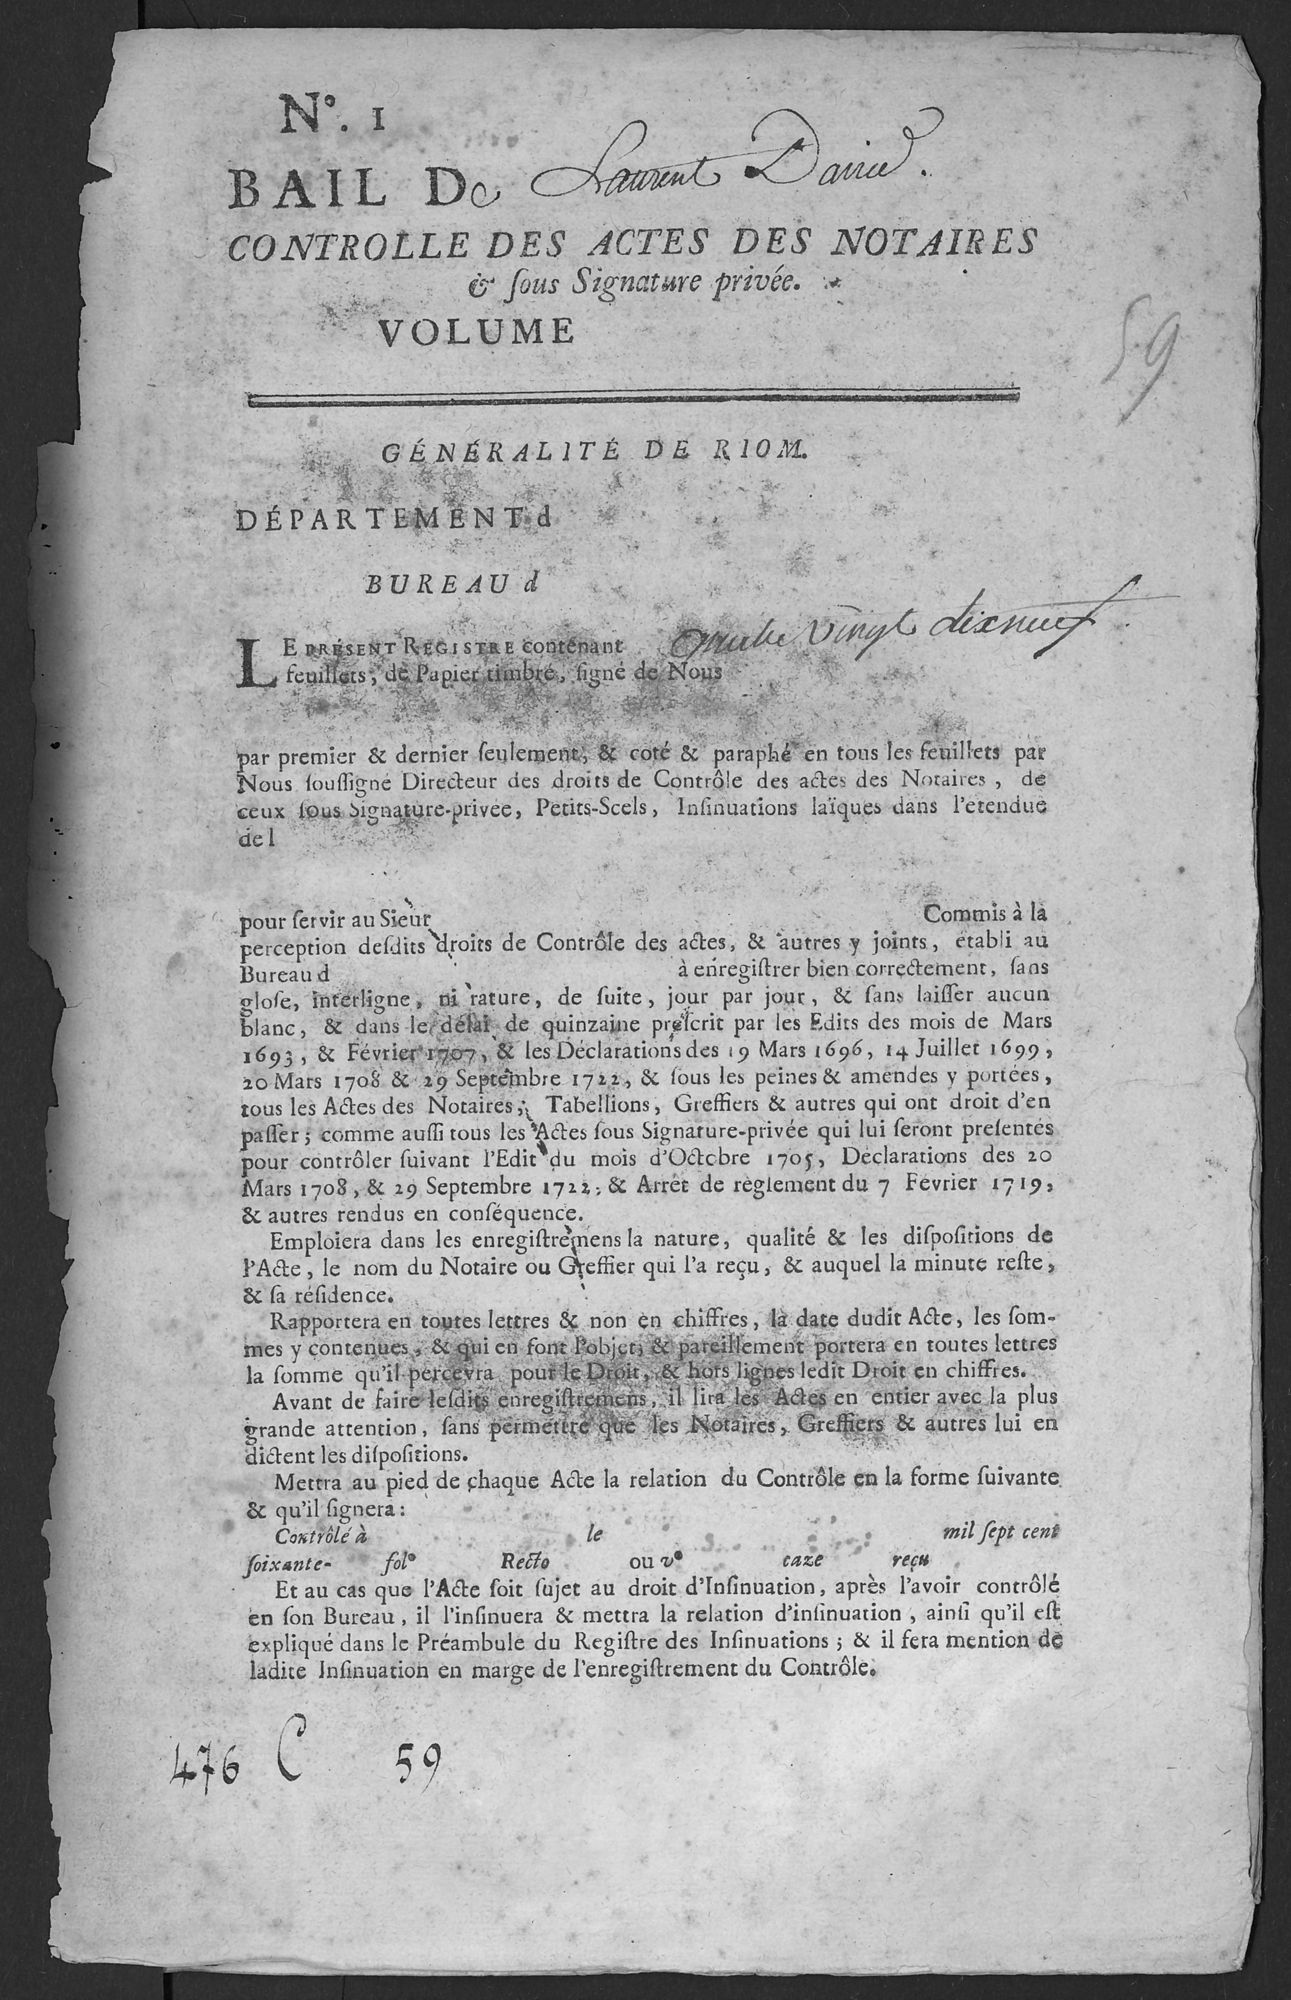 N.º 1
BAIL De Laurent David.
CONTROLLE DES ACTES DES NOTAIRES
& ſous Signature privée.
VOLUME
59
GÉNÉRALITÉ DE RIOM.
DÉPARTEMENT d
BUREAU d
LE PRÉSENT REGISTRE contenant quatre vingt dixneuf
feuillets, de Papier timbré, ſigné de Nous
par premier & dernier ſeulement, & coté & paraphé en tous les feuillets par
Nous ſouſſigné Directeur des droits de Contrôle des actes des Notaires, de
ceux ſous Signature-privée, Petits-Scels, Inſinuations laïques dans l'étendue
de l
pour ſervir au Sieur Commis à la
perception deſdits droits de Contrôle des actes, & autres y joints, établi au
Bureau d à enregiſtrer bien correctement, ſans
gloſe, interligne, ni rature, de ſuite, jour par jour, & ſans laiſſer aucun
blanc, & dans le délai de quinzaine preſcrit par les Edits des mois de Mars
1693, & Février 1707, & les Déclarations des 19 Mars 1696, 14 Juillet 1699,
20 Mars 1708 & 29 Septembre 1722, & ſous les peines & amendes y portées,
tous les Actes des Notaires, Tabellions, Greffiers & autres qui ont droit d'en
paſſer; comme auſſi tous les Actes ſous Signature-privée qui lui ſeront preſentés
pour contrôler ſuivant l'Edit du mois d'Octobre 1705, Déclarations des 20
Mars 1708, & 29 Septembre 1722, & Arrêt de règlement du 7 Février 1719,
& autres rendus en conſéquence.
Emploiera dans les enregiſtremens la nature, qualité & les diſpoſitions de
l'Acte, le nom du Notaire ou Greffier qui l'a reçu, & auquel la minute reſte,
& ſa réſidence.
Rapportera en toutes lettres & non en chiffres, la date dudit Acte, les ſom-
mes y contenues, & qui en font l'objet; & pareillement portera en toutes lettres
la ſomme qu'il percevra pour le Droit, & hors lignes ledit Droit en chiffres.
Avant de faire leſdits enregiſtremens, il lira les Actes en entier avec la plus
grande attention, ſans permettre que les Notaires, Greffiers & autres lui en
dictent les diſpoſitions.
Mettra au pied de chaque Acte la relation du Contrôle en la forme ſuivante
& qu'il ſignera:
Contrôlé à le mil ſept cent
ſoixante- folº Recto ou vº caze reçu
Et au cas que l'Acte ſoit ſujet au droit d'Inſinuation, après l'avoir contrôlé
en ſon Bureau, il l'inſinuera & mettra la relation d'inſinuation, ainſi qu'il eſt
expliqué dans le Préambule du Regiſtre des Inſinuations; & il fera mention de
ladite Inſinuation en marge de l'enregiſtrement du Contrôle.
476 C 59